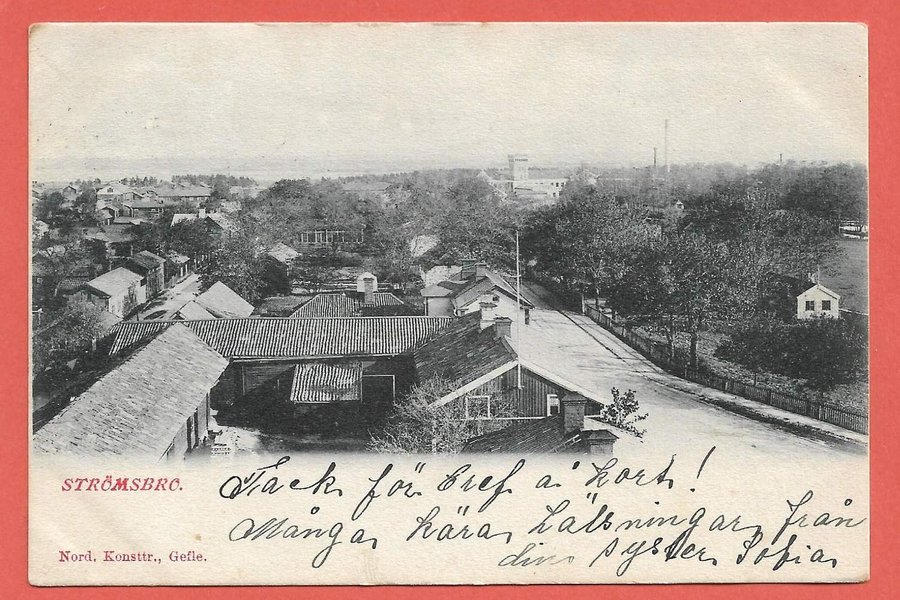 STRÖMSBRO.
Tack för Bref å kort!
Många kära hälsningar från
din syster Sofia
Nord. Konsttr., Gefle.